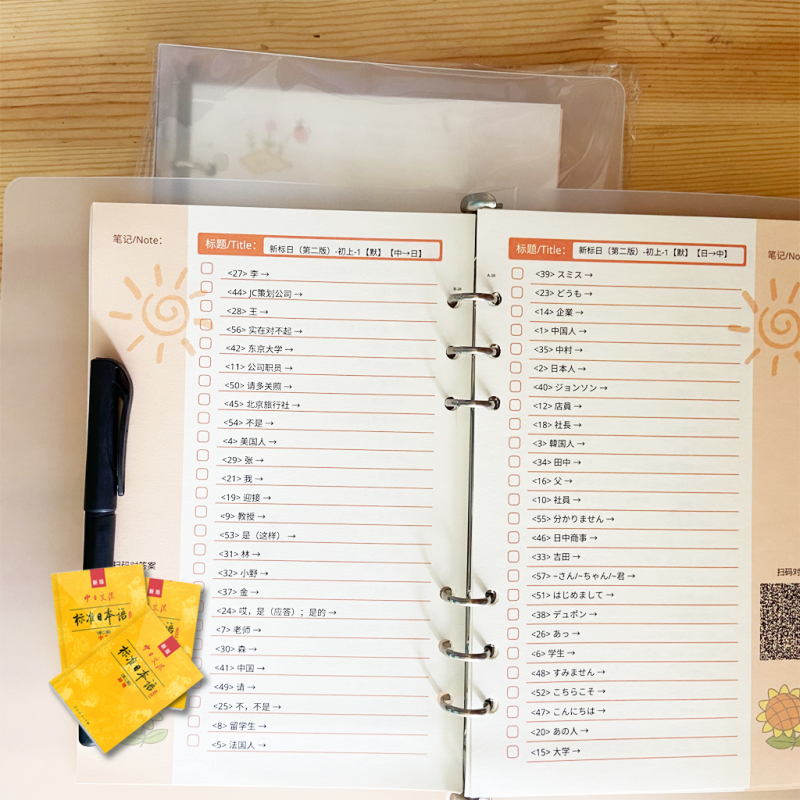 笔记/Note:
标题/Title: 新标日（第二版）-初上-1【默】【中→日】
<27> 李 →
<44> JC策划公司 →
<28> 王 →
<56> 实在对不起 →
<42> 东京大学 →
<11> 公司职员 →
<50> 请多关照 →
<45> 北京旅行社 →
<54> 不是 →
<4> 美国人 →
<29> 张 →
<21> 我 →
<19> 迎接 →
<9> 教授 →
<53> 是（这样） →
<31> 林 →
<32> 小野 →
<37> 金 →
<24> 哎，是（应答）；是的 →
<7> 老师 →
<30> 森 →
<41> 中国 →
<49> 请 →
<25> 不，不是 →
<8> 留学生 →
<5> 法国人 →
扫码对答案
标题/Title: 新标日（第二版）-初上-1【默】【日→中】
<39> スミス →
<23> どうも →
<14> 企業 →
<1> 中国人 →
<35> 中村 →
<2> 日本人 →
<40> ジョンソン →
<12> 店員 →
<18> 社長 →
<3> 韓国人 →
<34> 田中 →
<16> 父 →
<10> 社員 →
<55> 分かりません →
<46> 日中商事 →
<33> 吉田 →
<57> ~さん/~ちゃん/~君 →
<51> はじめまして →
<38> デュポン →
<26> あっ →
<6> 学生 →
<48> すみません →
<52> こちらこそ →
<47> こんにちは →
<20> あの人 →
<15> 大学 →
笔记/No
扫码对
新版
中日交流
标准日本语
新版
中日交流
标准日本语